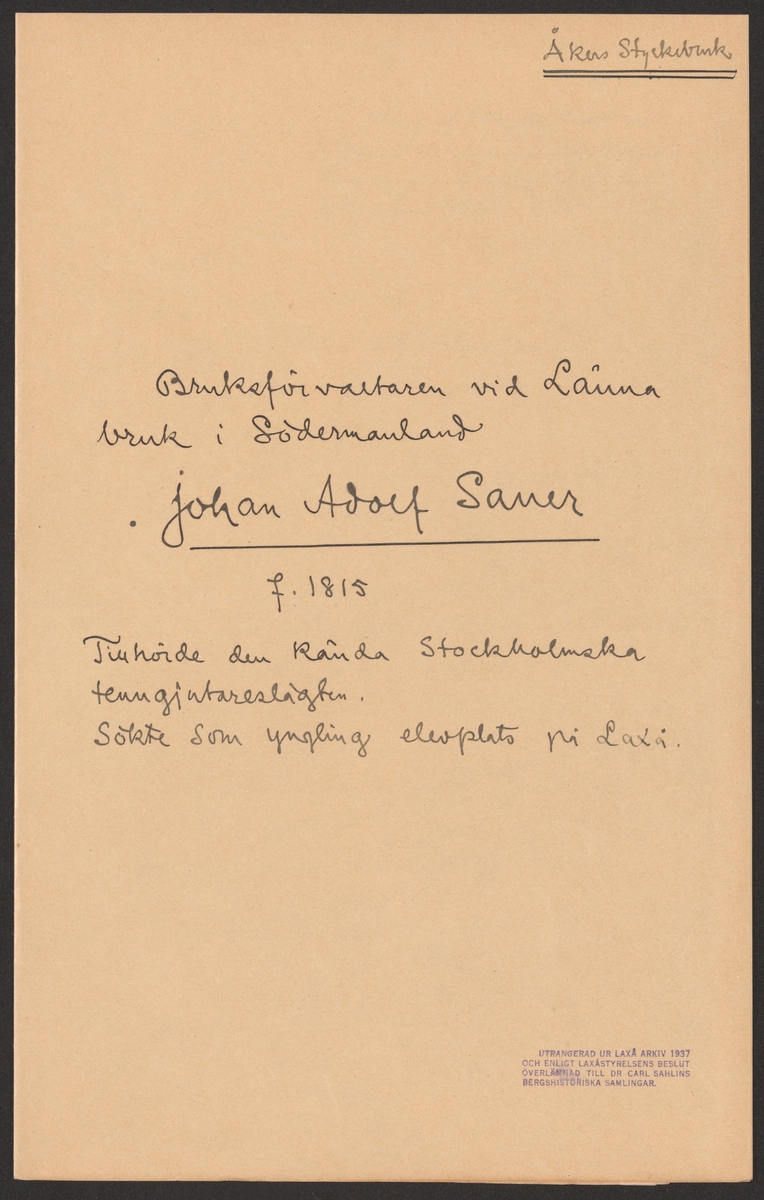 Åkers Styckebruk
Bruksförvaltaren vid Länna
bruk i Södermanland
Johan Adolf Sauer
f. 1815
Tillhörde den kända Stockholmska
tenngjutareslägten.
Sökte som yngling elevplats på Laxå.
UTRANGERAD UR LAXÅ ARKIV 1937
OCH ENLIGT LAXÅSTYRELSENS BESLUT
ÖVERLÄMNAD TILL DR CARL SAHLINS
BERGSHISTORISKA SAMLINGAR.